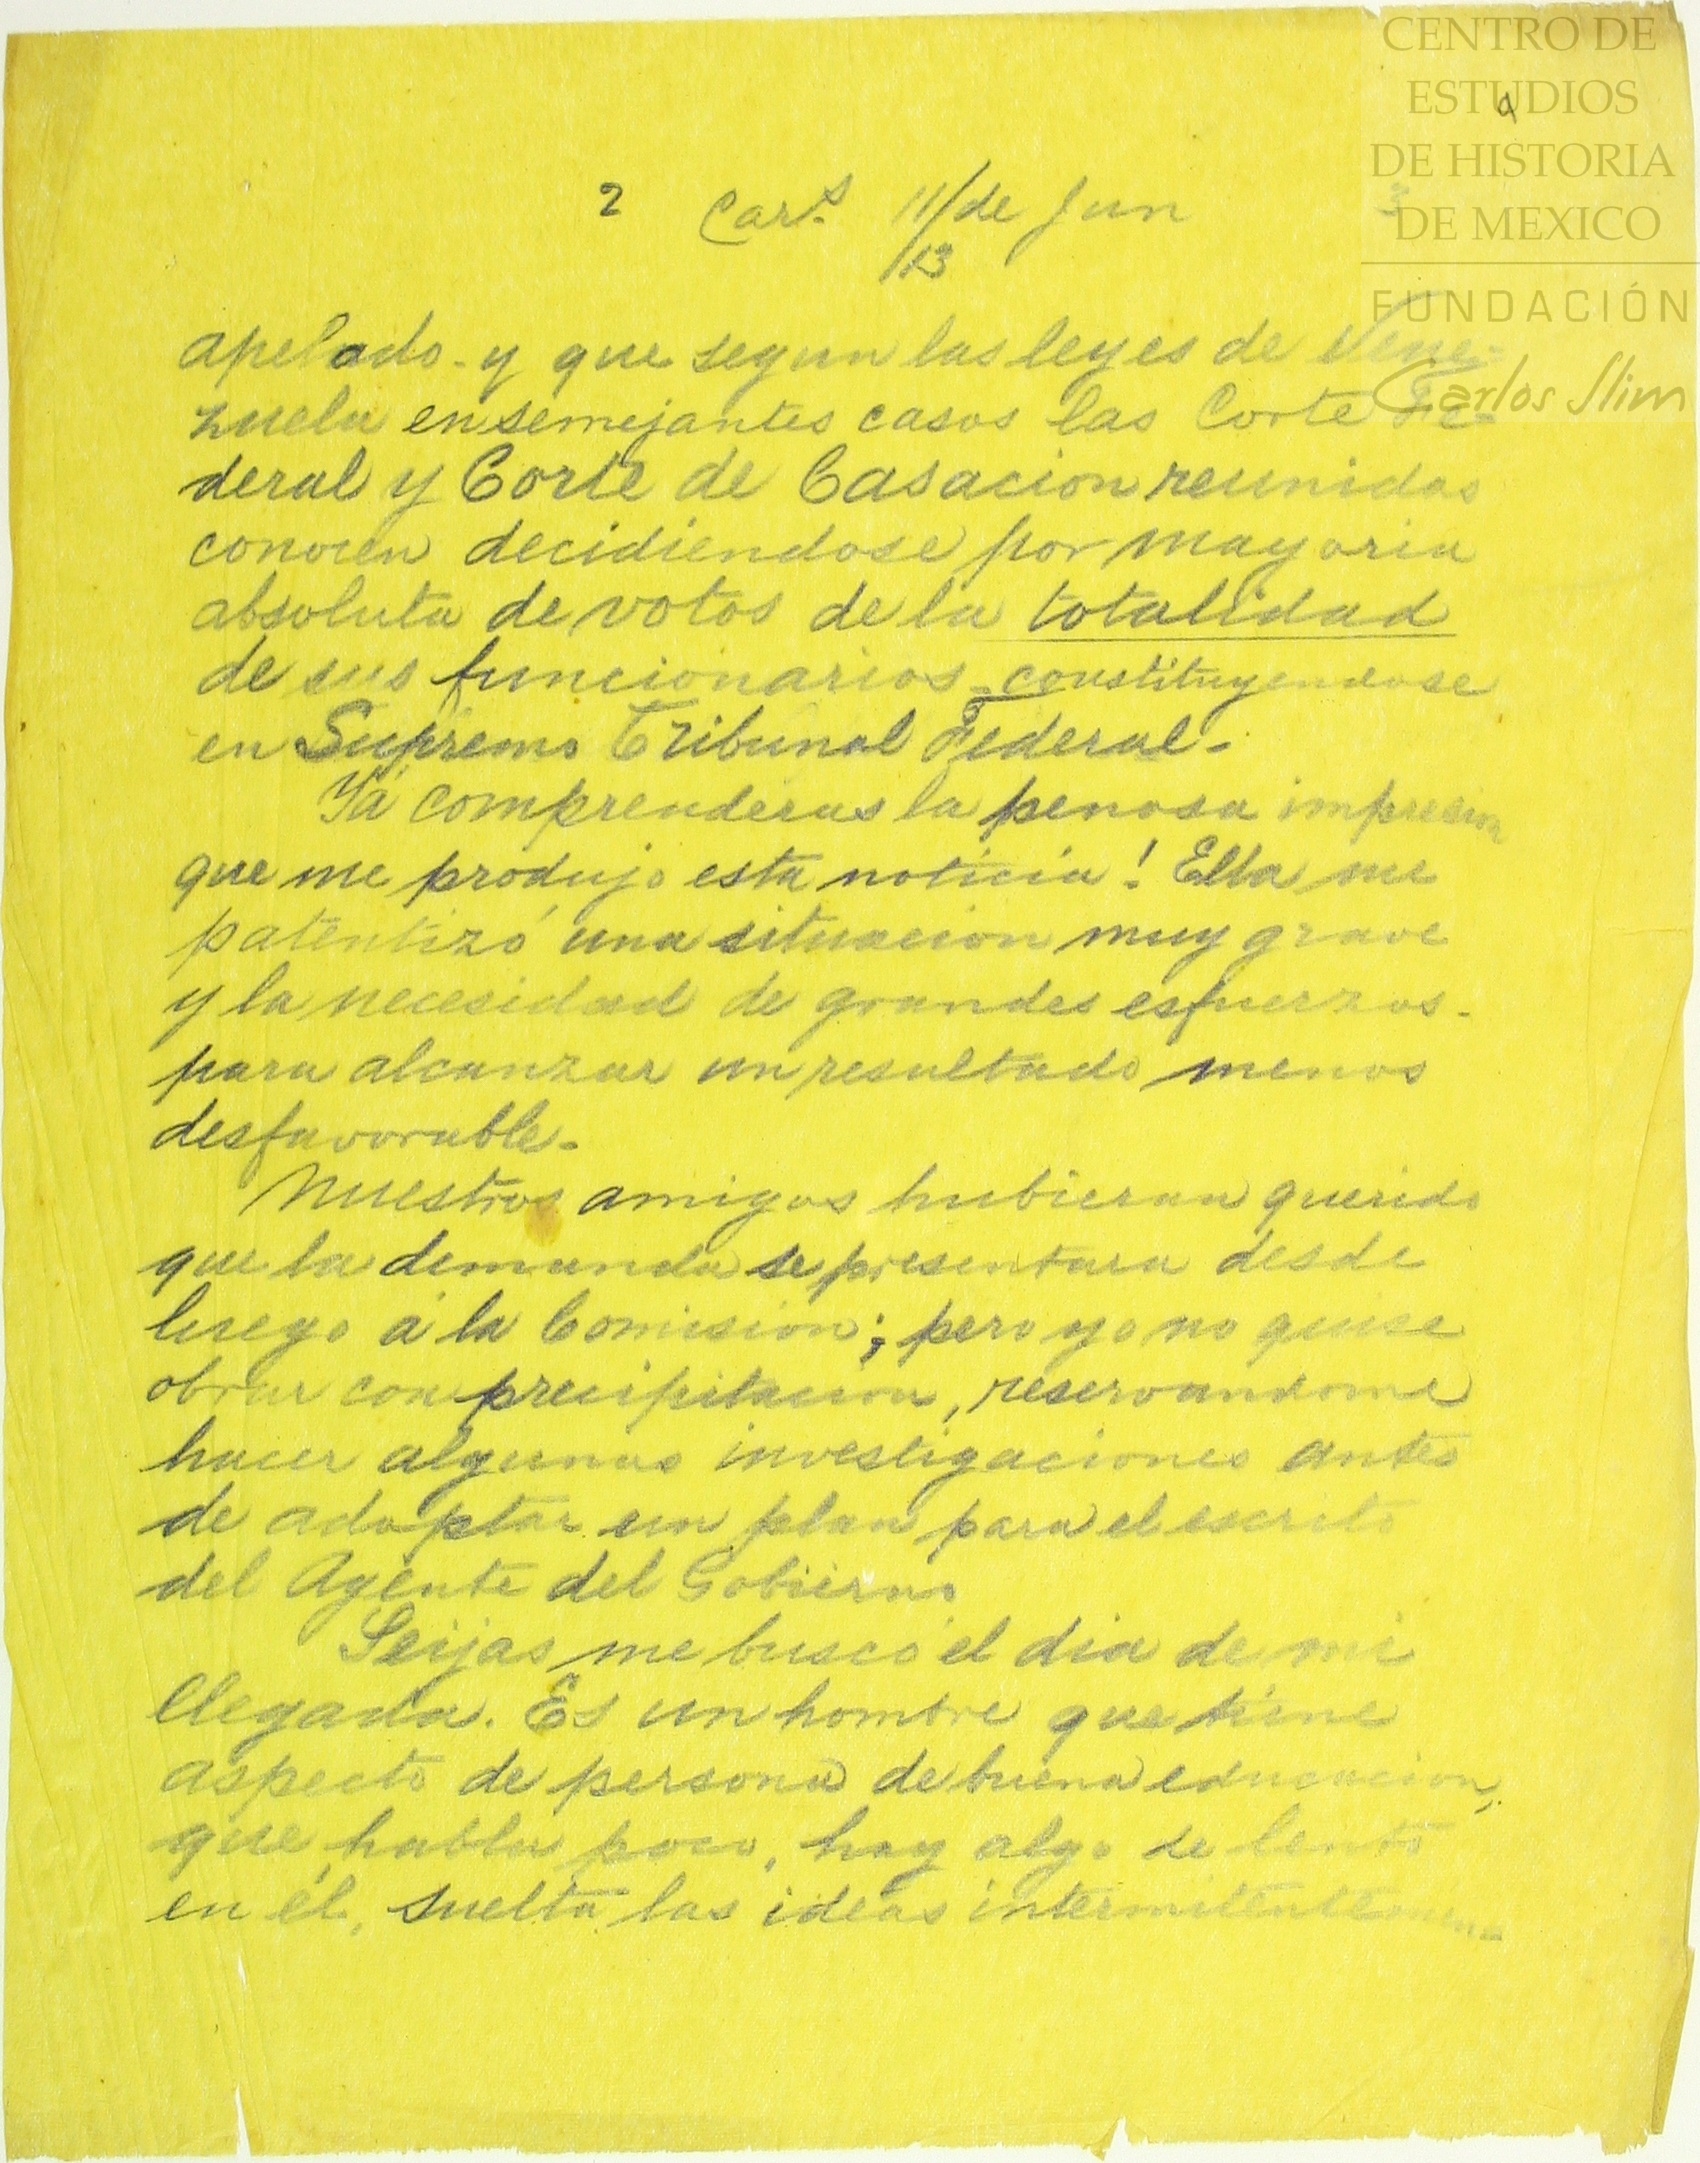 CENTRO DE
ESTUDIOS
DE HISTORIA
DE MEXICO
FUNDACIÓN
Carlos Slim
2 Cars. 11/de Jun
/13
apelado - y que segun las leyes de Vene-
zuela en semejantes casos las Corte Fe-
deral y Corte de Casacion reunidas
conocen decidiendose por mayoria
absoluta de votos de la totalidad
de sus funcionarios - constituyendose
en Supremo Tribunal Federal -
Yá comprenderas la penosa impresion
que me produjo esta noticia! Ella me
patentizó una situacion muy grave
y la necesidad de grandes esfuerzos -
para alcanzar un resultado menos
desfavorable -
Nuestros amigos hubieran querido
que la demanda se presentara desde
luego á la Comision; pero yo no quise
obrar con precipitacion, reservandome
hacer algunas investigaciones antes
de adoptar un plan para el escrito
del Agente del Gobierno
Seijas me buscó el dia de mi
llegada. Es un hombre que tiene
aspecto de persona de buena educacion,
que habla poco, hay algo de lento
en él, suelta las ideas intermitentemen-